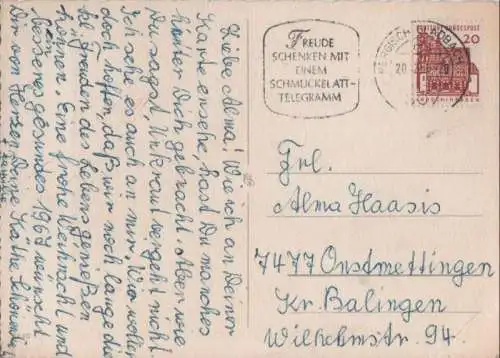 Liebe Alma! Wie ich an Deiner
Karte ersehe, hast Du manches
hinter Dich gebracht. Aber wie
Du sagst, Unkraut vergeht nicht
Ich sehe es auch an mir. Wir wollen
doch hoffen, daß wir noch lange die
Freuden des Lebens genießen
können. Eine frohe Weihnacht und
besseres gesundes 1967 wünscht
Dir von Herzen Deine Käthe
FREUDE
SCHENKEN MIT
EINEM
SCHMUCKBLATT-
TELEGRAMM
DEUTSCHE BUNDESPOST
20
Frl.
Alma Haasis
7477 Onstmettingen
Kr. Balingen
Wilhelmstr. 94.